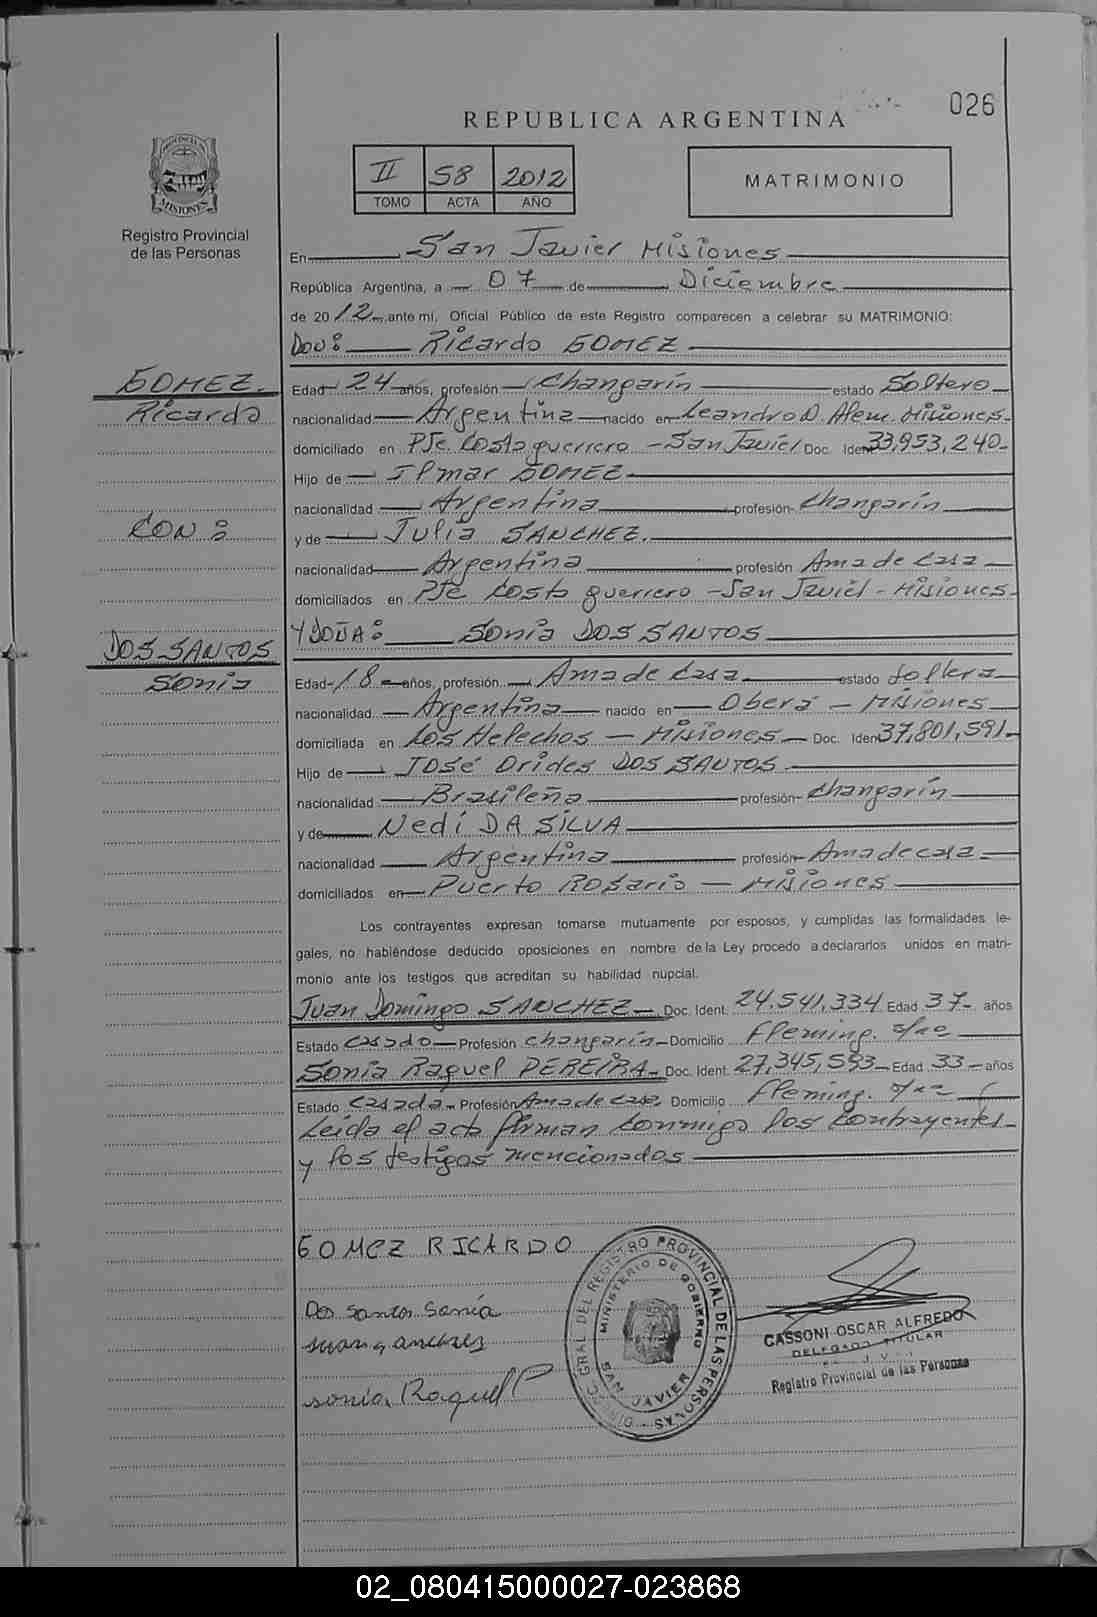 026
REPUBLICA ARGENTINA
PROVINCIA
MISIONES
Registro Provincial
de las Personas
II 58 2012
TOMO ACTA AÑO
MATRIMONIO
En San Javier Misiones
República Argentina, a 07 de Diciembre
de 2012 ante mí, Oficial Público de este Registro comparecen a celebrar su MATRIMONIO:
Don: Ricardo GOMEZ
GOMEZ.
Ricardo
Edad 24 años, profesión Changarín estado Soltero
nacionalidad Argentina nacido en Leandro N. Alem. Misiones
domiciliado en Pje Costa guerrero - San Javier Doc. Iden 33,953,240
Hijo de GOMEZ
nacionalidad Argentina profesión Changarín
CON:
y de Julia SANCHEZ.
nacionalidad Argentina profesión Ama de Casa
domiciliados en Pje Costa guerrero - San Javier - Misiones
Y DOÑA: Sonia DOS SANTOS
DOS SANTOS
Sonia
Edad 18 años, profesión Ama de Casa estado Soltera
nacionalidad Argentina nacido en Oberá - Misiones
domiciliada en Los Helechos - Misiones Doc. Iden 37,801,591
Hijo de José Orides DOS SANTOS
nacionalidad Brasileña profesión Changarín
y de Nedí DA SILVA
nacionalidad Argentina profesión Ama de casa
domiciliados en Puerto Rosario - Misiones
Los contrayentes expresan tomarse mutuamente por esposos, y cumplidas las formalidades le-
gales, no habiéndose deducido oposiciones en nombre de la Ley procedo a declararlos unidos en matri-
monio ante los testigos que acreditan su habilidad nupcial.
Juan Domingo SANCHEZ Doc. Ident. 24.541,334 Edad 37 años
Estado Casado Profesión Changarín Domicilio Fleming.
Sonia Raquel PEREIRA Doc. Ident. 27,345,593 Edad 33 años
Estado Casada Profesión Ama de Casa Domicilio Fleming.
Leída el acta firman conmigo los contrayentes
y los testigos mencionados
GOMEZ RICARDO
Dos Santos Sonia
Juan Sanches
Sonia Raquel P
DIREC. GRAL DEL REGISTRO PROVINCIAL DE LAS PERSONAS
MINISTERIO DE GOBIERNO
SAN JAVIER
CASSONI OSCAR ALFREDO
DELEGADO TITULAR
Registro Provincial de las Personas
02_080415000027-023868